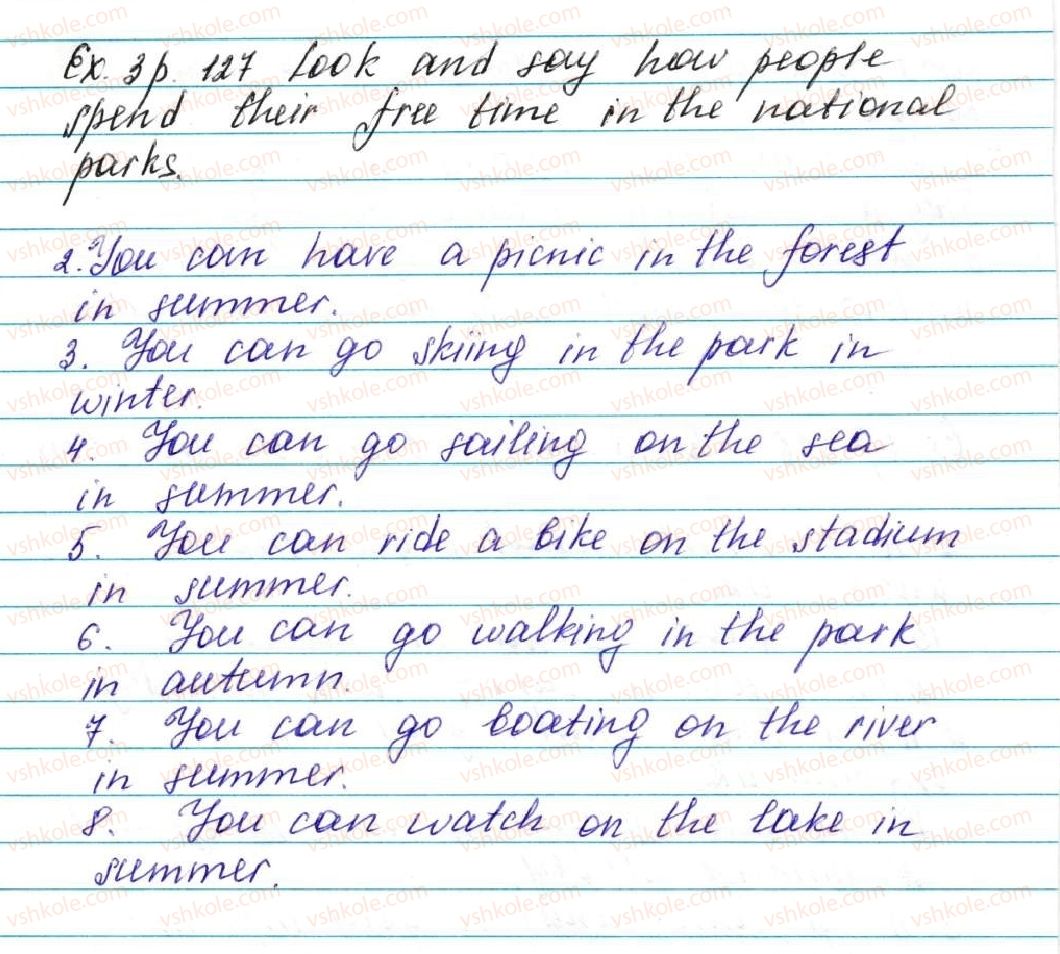 Ex. 3 p. 127 Look and say how people
spend their free time in the national
parks.
2. You can have a picnic in the forest
in summer.
3. You can go skiing in the park in
winter.
4. You can go sailing on the sea
in summer.
5. You can ride a bike on the stadium
in summer.
6. You can go walking in the park
in autumn.
7. You can go boating on the river
in summer.
8. You can watch on the lake in
summer.
vshkole.com